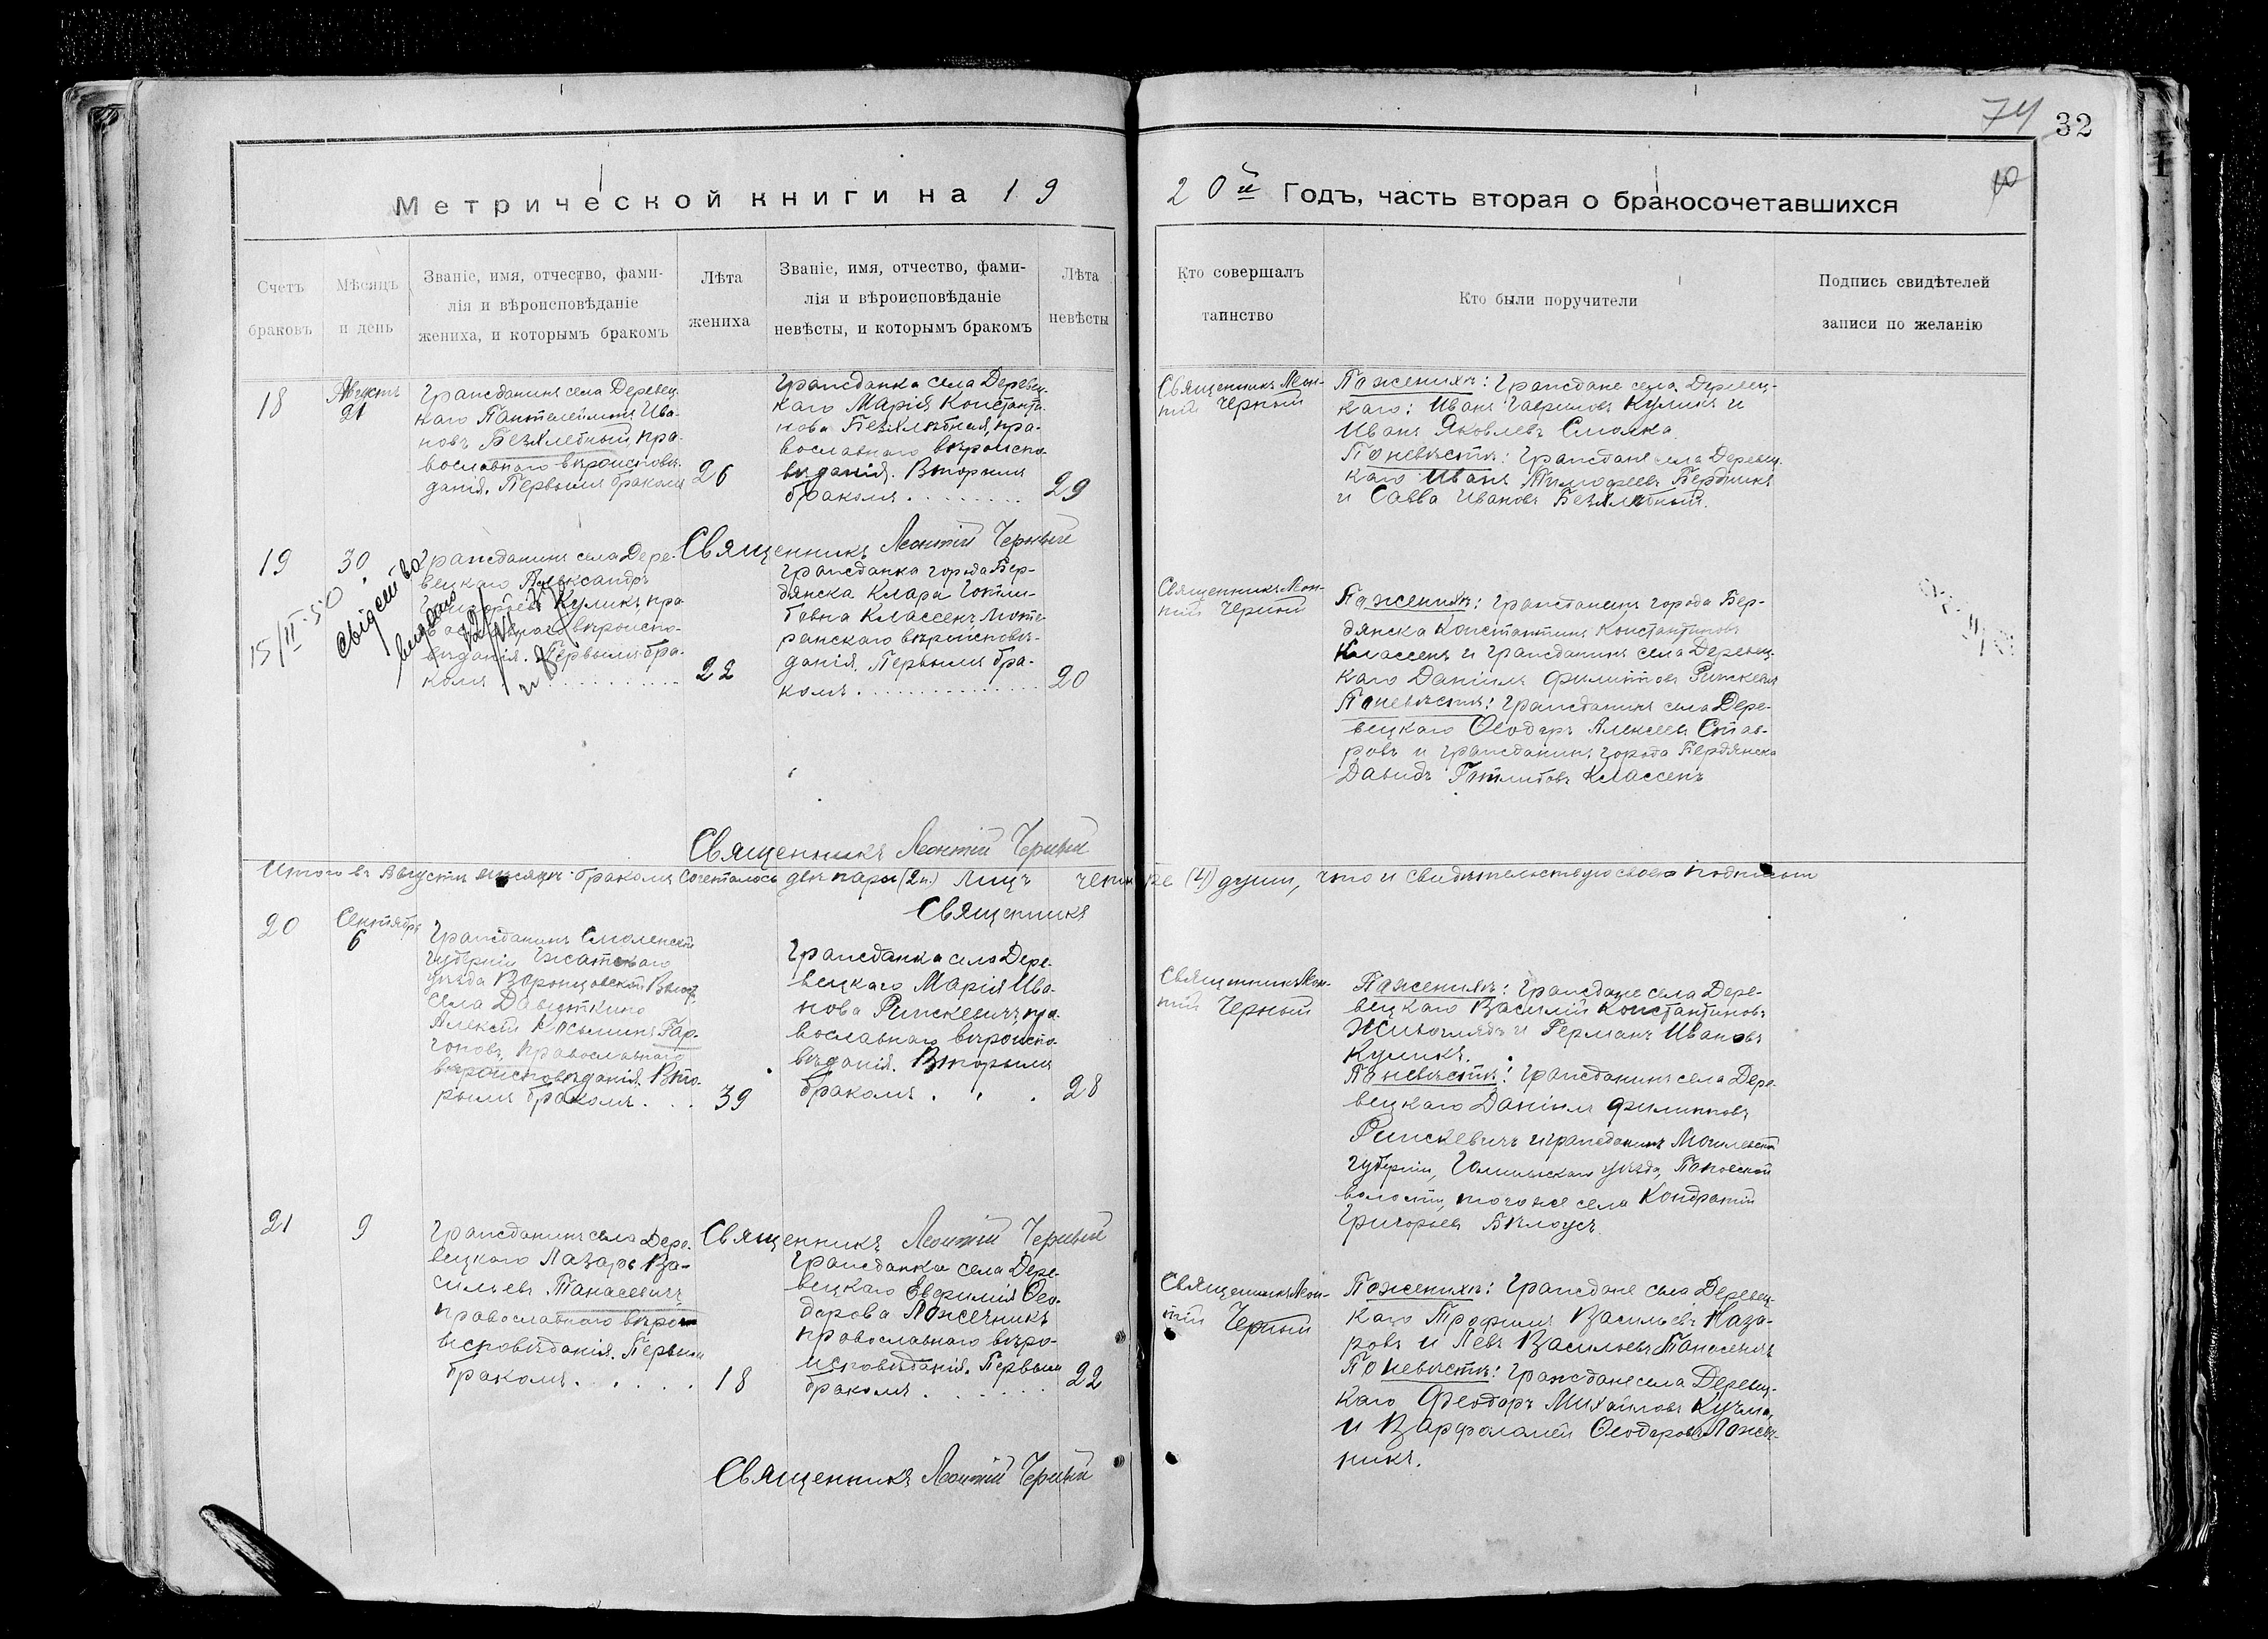 74
32
Метрической книги на 19
20й Годъ, часть вторая о бракосочетавшихся
Счетъ
браковъ
Мѣсяцъ
и день
Званіе, имя, отчество, фами-
лія и вѣроисповѣданіе
жениха, и которымъ бракомъ
Лѣта
жениха
Званіе, имя, отчество, фами-
лія и вѣроисповѣданіе
невѣсты, и которымъ бракомъ
Лѣта
невѣсты
Кто совершалъ
таинство
Кто были поручители
Подпись свидѣтелей
записи по желанію
18
Августъ
21
Гражданинъ села Деревец-
каго Пантелеймонъ Ива-
новъ Безхлебный, пра-
вославнаго вѣроисповѣ-
данія. Первымъ бракомъ
26
Гражданка села Деревец-
каго Марія Константи-
нова Безхлѣбная, пра-
вославнаго вѣроиспо-
вѣданія. Вторымъ
бракомъ
29
Священникъ Леон-
тій Черный
По женихѣ: Граждане села Деревец-
каго: Иванъ Гавриловъ Куликъ и
Иванъ Яковлевъ Смолка.
По невѣстѣ: Граждане села Деревец-
каго Иванъ Тимофеевъ Бердникъ
и Савва Ивановъ Безхлѣбный.
Священникъ Леонтій Черный
19
30
15/II-50
свідоцтво
видано
Гражданинъ села Дере-
вецкаго Александръ
Григорьевъ Куликъ, пра-
вославнаго вѣроиспо-
вѣданія. Первымъ бра-
комъ
22
Гражданка города Бер-
дянска Клара Готли-
бовна Классенъ, люте-
ранскаго вѣроисповѣ-
данія. Первымъ бра-
комъ
20
Священникъ Леон-
тій Черный
По женихѣ: Гражданинъ города Бер-
дянска Константинъ Константиновъ
Классенъ и гражданинъ села Деревец-
каго Даніилъ Филиповъ Рижкевич
По невѣстѣ: Гражданинъ села Дере-
вецкаго Ѳеодоръ Алексеевъ Став-
ровъ и гражданинъ города Бердянска
Давидъ Готлибовъ Классенъ
Священникъ Леонтій Черный
Итого въ Августѣ мѣсяцѣ бракомъ сочеталось двѣ пары (2 п.) лицъ четыре (4) души, что и свидѣтельствую своею подписью
Священникъ
20
Сентябрь
6
Гражданинъ Смоленской
губерніи Гжатскаго
уѣзда Воронцовской Волост.
села Давыткино
Алексѣй Косьминъ Гар-
гоновъ, православнаго
вѣроисповѣданія. Вто-
рымъ бракомъ
39
Гражданка села Дере-
вецкаго Марія Ива-
нова Рижкевичъ, пра-
вославнаго вѣроиспо-
вѣданія. Вторымъ
бракомъ
28
Священникъ Леон-
тій Черный
По женихѣ: Граждане села Дере-
вецкаго Василій Константиновъ
Живоглядъ и Германъ Ивановъ
Куликъ.
По невѣстѣ: Гражданинъ села Дере-
вецкаго Даніилъ Филипповъ
Рижкевичъ и гражданинъ Могилевской
губерніи, Гомельскаго уѣзда, Поповской
волости, того же села Кондратій
Григорьевъ Бѣлоусъ.
Священникъ Леонтій Черный
21
9
Гражданинъ села Дере-
вецкаго Лазарь Ва-
сильевъ Панасевичъ
православнаго вѣро-
исповѣданія. Первымъ
бракомъ
18
Гражданка села Дере-
вецкаго Евфимія Ѳео-
дорова Ложечникъ
православнаго вѣро-
исповѣданія. Первымъ
бракомъ
22
Священникъ Леон-
тій Черный
По женихѣ: Граждане села Деревец-
каго Трофимъ Васильевъ Наза-
ровъ и Левъ Васильевъ Панасевичъ
По невѣстѣ: Граждане села Деревец-
каго Феодоръ Михайловъ Кучма,
и Варфоломей Ѳеодоровъ Ложеч-
никъ.
Священникъ Леонтій Черный